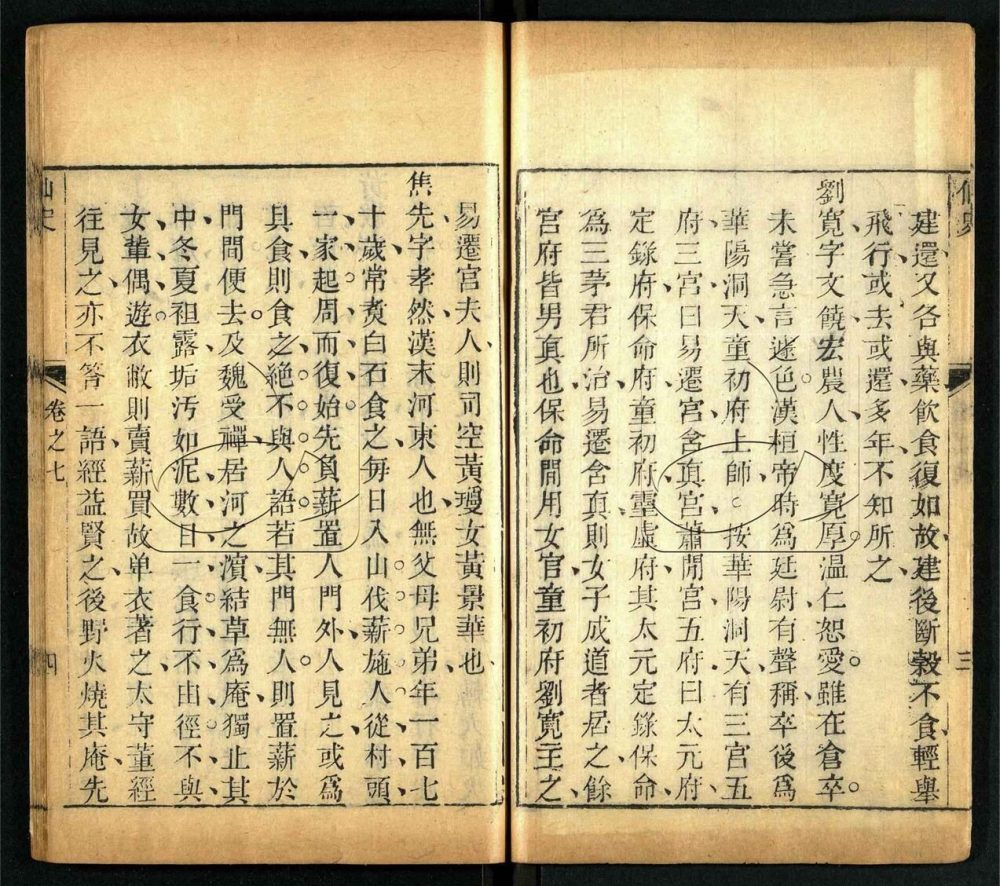 建還又各與藥飲食復如故建後斷穀不食輕舉
飛行或去或還多年不知所之
劉寬字文饒宏農人性度寬厚温仁恕愛雖在倉卒
未嘗急言遽色漢桓帝時爲廷尉有聲稱卒後爲
華陽洞天童初府上師按華陽洞天有三宫五
府三宫曰易遷宫含真宫蕭閒宫五府曰太元府
定錄府保命府童初府靈虛府其太元定錄保命
爲三茅君所治易遷含真則女子成道者居之餘
宫府皆男真也保命間用女官童初府劉寬主之
三
易遷宫夫人則司空黃瓊女黃景華也
焦先字孝然漢末河東人也無父母兄弟年一百七
十歲常煑白石食之每日入山伐薪施人從村頭
一家起周而復始先負薪置人門外人見之或爲
具食則食之絶不與人語若其門無人則置薪於
門間便去及魏受禪居河之濱結草爲庵獨止其
中冬夏袒露垢汚如泥數日一食行不由徑不與
女輩偶遊衣敝則賣薪買故单衣著之太守董經
往見之亦不答一語經益賢之後野火燒其庵先
卷之七
四